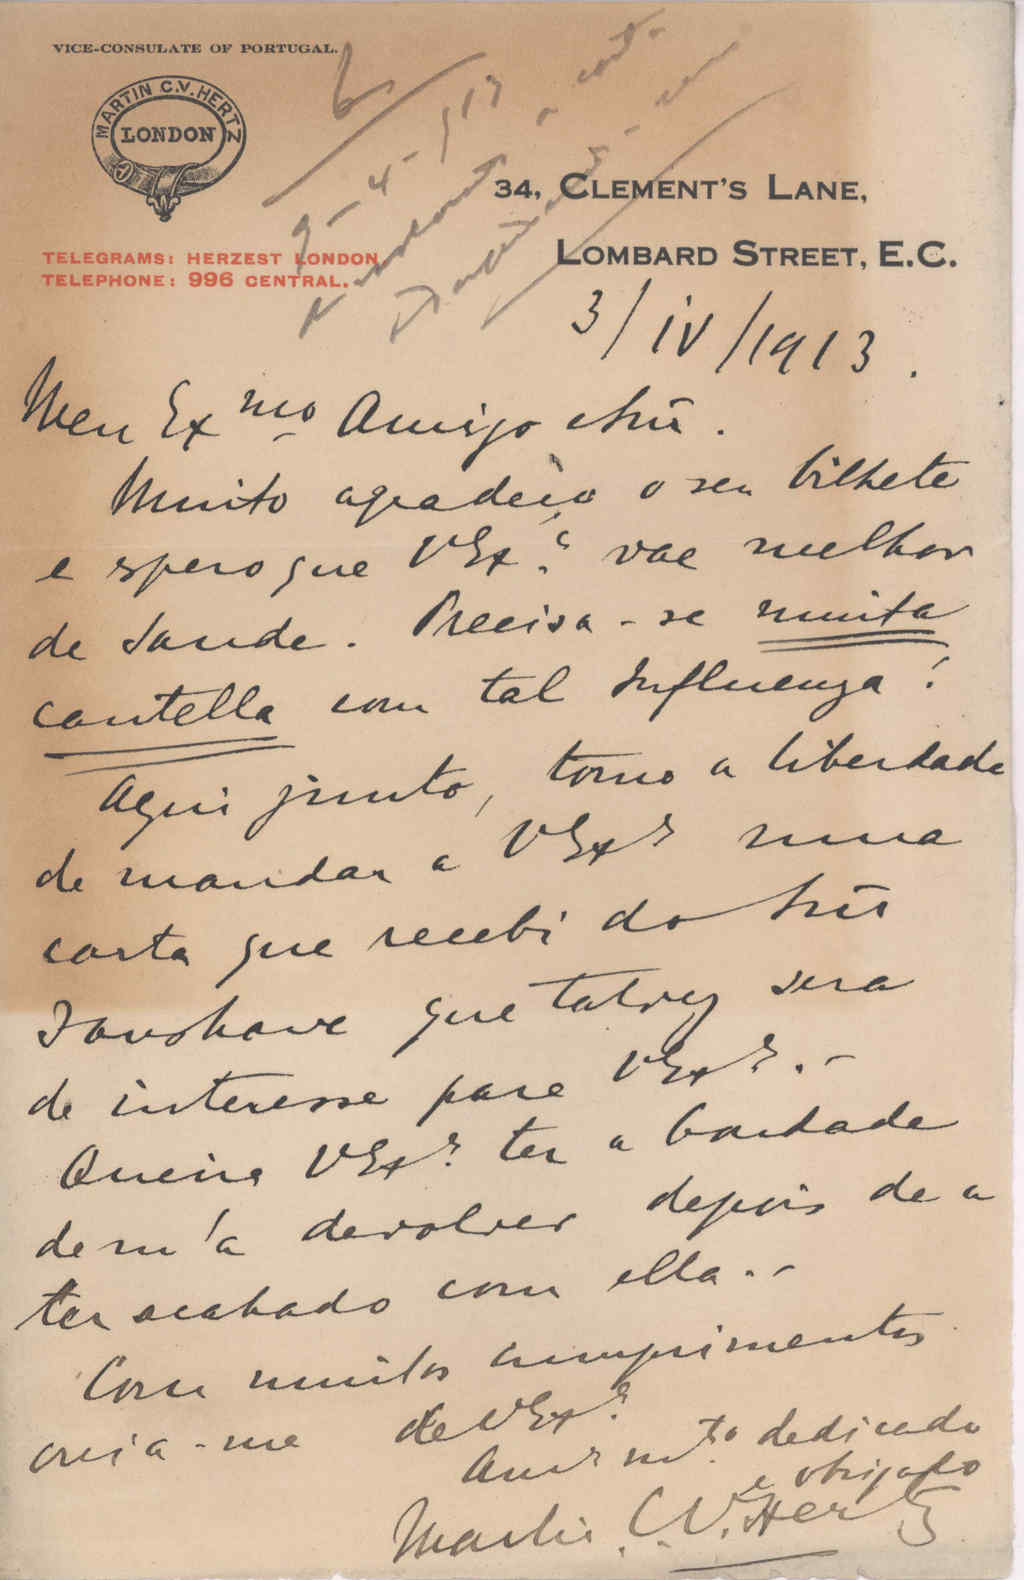 VICE-CONSULATE OF PORTUGAL.
MARTIN C.V. HERTZ
LONDON
34, CLEMENT'S LANE,
LOMBARD STREET, E.C.
TELEGRAMS: HERZEST LONDON
TELEPHONE: 996 CENTRAL.
9-4-913
3/IV/1913.
Meu Exmo Amigo e Snr.
Muito agradeço o seu bilhete
e espero que VExa. vae melhor
de saude. Precisa-se muita
cautella com tal Influenza!
Aqui junto, tomo a liberdade
de mandar a VExa uma
carta que recebi do Snr
que talvez sera
de interesse para VExa.-
Queira VExa. ter a bondade
de m'a devolver depois de a
ter acabado com ella.-
Com muitos cumprimentos
creia-me de VExa.
Amo mto. dedicado
e obrigado
Martin C.V. Hertz